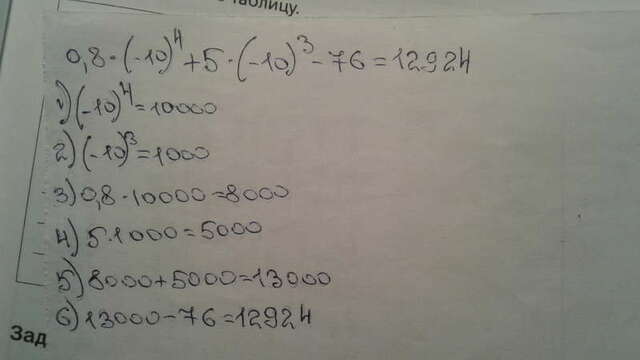 0,8·(-10)⁴+5·(-10)³-76=12924
1)(-10)⁴=10000
2)(-10)³=1000
3)0,8·10000=8000
4)5·1000=5000
5)8000+5000=13000
6)13000-76=12924
Зад